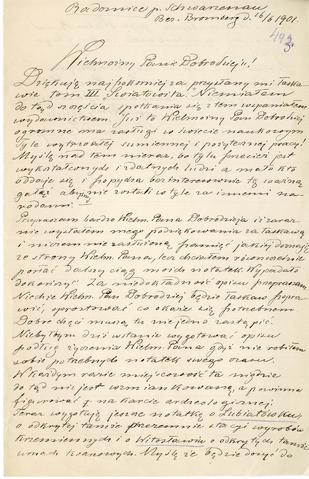 Radomice p. Schwarzenau
Bez. Bromberg d. 16/6 1901.
493
Wielmożny Panie Dobrodzieju!
Dziękuję najpokorniej za przysłany mi łaska-
wie tom III Światowita. Niemiałem
do tąd szczęścia spotkania się z tem wspaniałem
wydawnictwem. Już to Wielmożny Pan Dobrodziej
ogromne ma zasługi w świecie naukowym
Tyle wytrwałej sumiennej i pożytecznej pracy!
Myślę nad tem nieraz, bo tylu przecież jest
wykształconych i zdatnych ludzi a mało kto
oddaje się i popycha bezinteresownie tę ważną
gałąź abyśmy nie zostali w tyle za innemi na-
rodami.
Przepraszam bardzo Wielm. Pana Dobrodzieja iż zaraz
nie wysłałem mego podziękowania za łaskawą
i niczem nie zasłużoną pamięć jakiej doznaję
ze strony Wielm. Pana, lecz chciałem równocześnie
posłać dalszy ciąg moich notatek. Wypadało
dokończyć. Za niedokładność opisu przepraszam.
Niechże Wielm. Pan Dobrodziej będzie łaskaw popra-
wić, sprostować co okaże się potrzebnem
Dobre chęci muszą tu niejedno zastąpić.
Niebyłbym dziś w stanie wygotować opisu
podług życzenia Wielm. Pana gdyż nie robiłem
sobie potrzebnych notatek swego czasu.
W każdym razie miejscowość ta nigdzie
do tąd nie jest wzmiankowaną, a powinna
figurować na karcie archeologicznej
Teraz wygotuję jeszcze notatkę o Lubiatówku
o odkrytej tamże stacyi wyrobów
krzemiennych i o Witosławiu o odkrytych tamże
urnach twarzowych. Myślę że będzie dosyć do